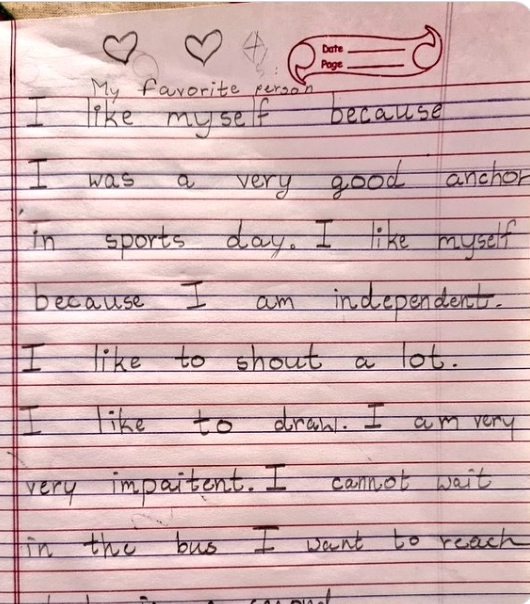 Date
Page
My favorite person
I like myself because
I was a very good anchor
in sports day. I like myself
because I am independent.
I like to shout a lot.
I like to draw. I am very
very impaitent. I cannot wait
in the bus I want to reach
in a second